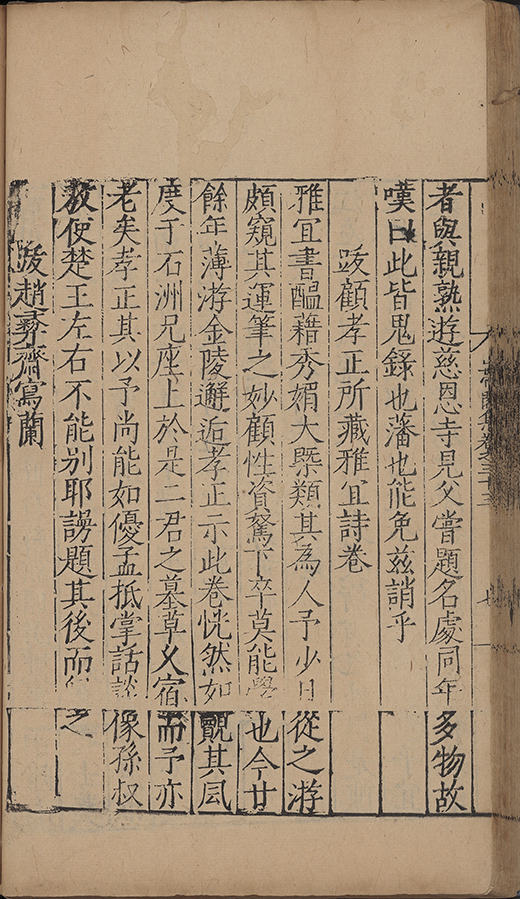 者與親熟遊慈恩寺見父嘗題名處同年多物故
嘆曰此皆鬼錄也藩也能免兹誚乎
跋顧孝正所藏雅宜詩卷
雅宜書醞藉秀媚大槩類其為人予少日從之游
頗窺其運筆之妙顧性資駑下卒莫能學也今廿
餘年薄游金陵邂逅孝正示此卷恍然如覿其風
度于石洲兄座上於是二君之墓草乂宿而予亦
老矣孝正其以予尚能如優孟抵掌話談像孫叔
敖使楚王左右不能別耶謾題其後而之
跋趙彞齋寫蘭